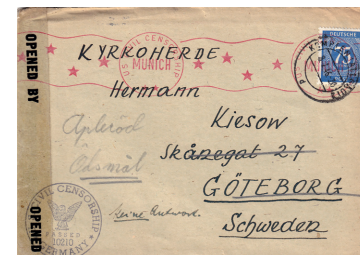 OPENED BY
OPENED
U.S. CIVIL CENSORSHIP
MUNICH
DEUTSCHE
75
KYRKOHERDE
Hermann
Kiesow
Skånegat 27
GÖTEBORG
Schweden
Apleröd
Ödsmål
Keine Antwort.
CIVIL CENSORSHIP
PASSED
10210
GERMANY